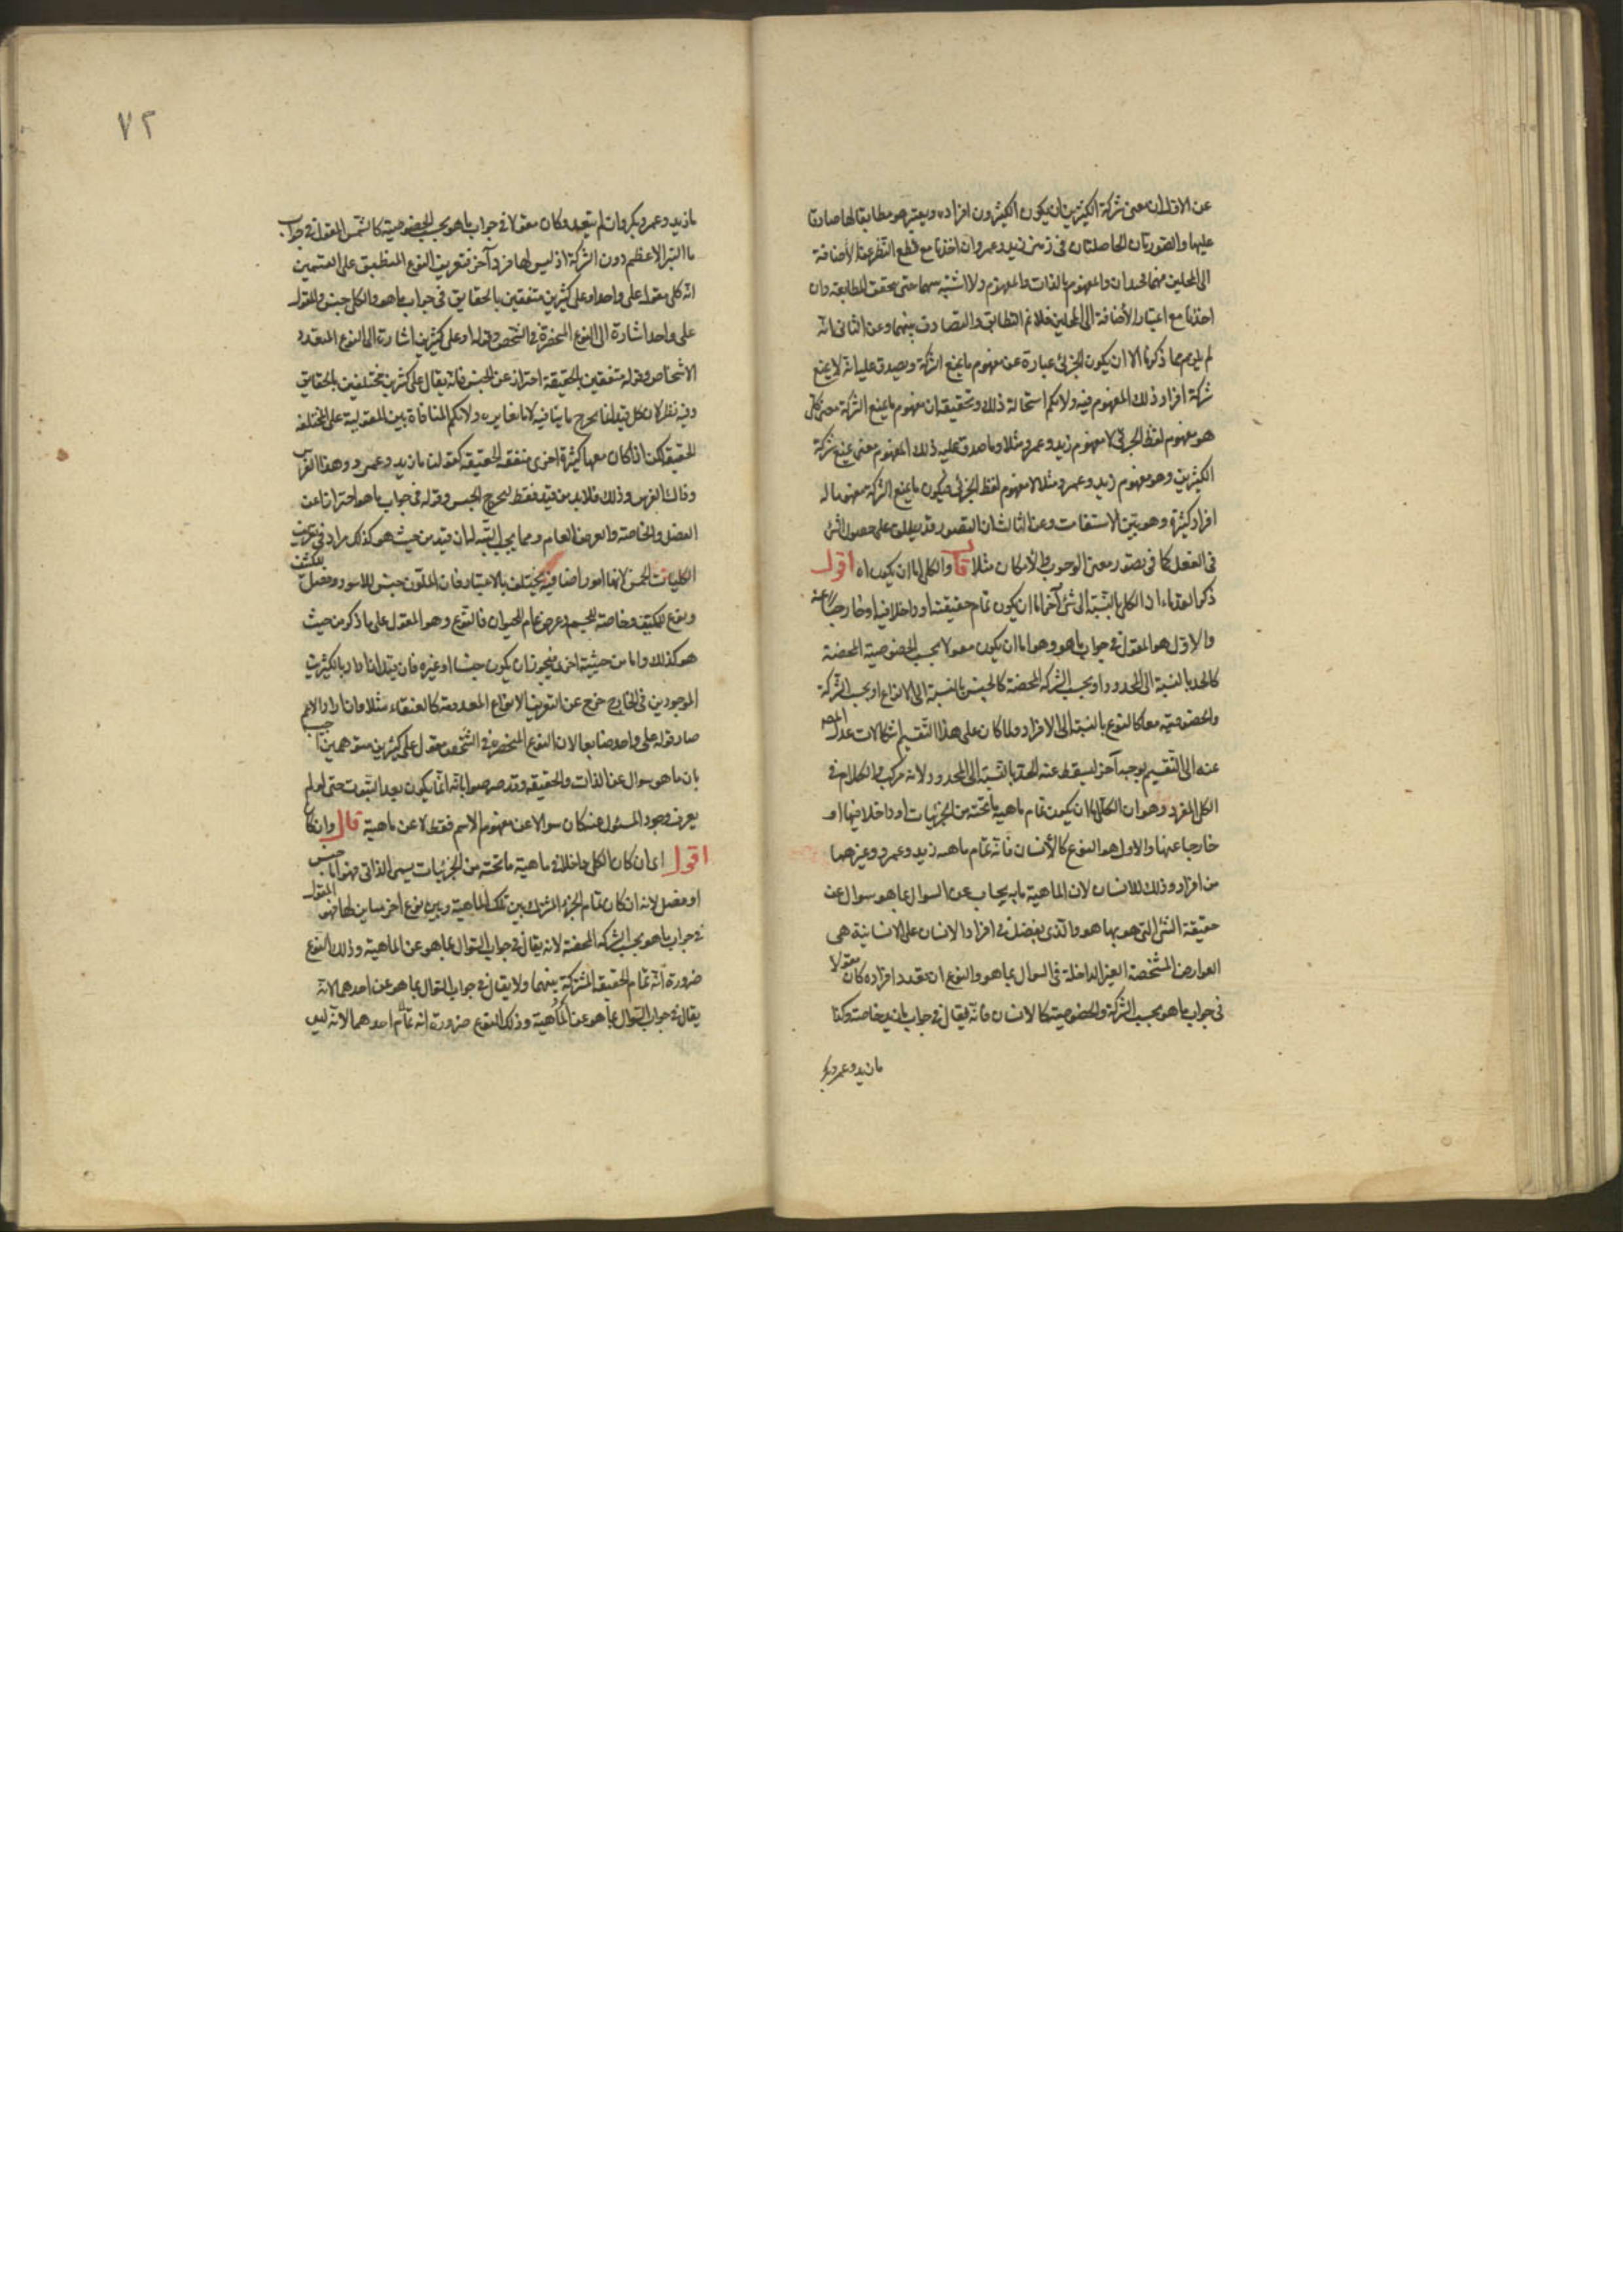 عن الاول ان معنى شركة الكثيرين ان يكون الكثيرون افراده ويعتبر هو مطابقا لها صادقا
عليها والصورتان الحاصلتان في ذهن زيد وعمرو ان اخذتا مع قطع النظر عن الاضافة
الى المحلين فهما متحدان والمفهوم بالذات والمفهوم ولا اثنينية بينهما حتى يتحقق المطابقة وان
اخذتا مع اعتبار الأضافة الى المحلين فلا نم التطابق والتصادق بينهما وعن الثاني انه
لم يلزم مما ذكرنا الا ان يكون الجزئي عبارة عن مفهوم ما يمنع الشركة ويصدق عليه انه لا يمنع
شركة افراد ذلك المفهوم فيه ولا نكم استحالة ذلك وتحقيقه ان مفهوم ما يمنع الشركة معنى كلي
هو مفهوم لفظ الجزئي لا مفهوم زيد وعمرو مثلا وما صدق عليه ذلك المفهوم معنى يمنع شركة
الكثيرين وهو مفهوم زيد وعمرو مثلا لا مفهوم لفظ الجزئي فيكون ما يمنع الشركة مفهوما له
افراد كثيرة وهو بين الاستقامة وعن الثالث ان التصور قد يطلق على حصول الشئ
في العقل كما في تصور معنى الوجوب والأمكان مثلا قال والكلي اما ان يكون اه اقول
ذكر القدماء ان الكلي بالنسبة الى شئ آخر اما ان يكون تمام حقيقته او داخلا فيها او خارجا عنه
والاول هو المقول في جواب ما هو وهو اما ان يكون مقولا بحسب الخصوصية المحضة
كالحد بالنسبة الى المحدود او بحسب الشركة المحضة كالجنس بالنسبة الى الانواع او بحسب الشركة
والخصوصية معا كالنوع بالنسبة الى الافراد ولما كان على هذا التقسيم اشكالات عدل المص
عنه الى التقسيم بوجه آخر ليسقط عنه الحد بالنسبة الى المحدود لانه مركب والكلام في
الكلي المفرد وهو ان الكلي اما ان يكون تمام ماهية ما تحته من الجزئيات او داخلا فيها او
خارجا عنها والاول هو النوع كالأنسان فانه تمام ماهية زيد وعمرو وغيرهما
من افراد وذلك للانسان لان الماهية ما به يجاب عن السوال بما هو سوال عن
حقيقة الشئ التي هو بها هو والذي يفضل في افراد الانسان على الانسانية هي
العوارض المشخصة الغير الداخلة في السوال بما هو والنوع ان تعدد افراده كان مقولا
في جواب ما هو بحسب الشركة والخصوصية كالانسان فانه يقال في جواب ما زيد خاصة وكذا
ما زيد وعمرو وبكر
٧٢
ما زيد وعمرو وبكر وان لم يتعدد كان مقولا في جواب ما هو بحسب الخصوصية كالشمس المقول في جواب
ما النير الاعظم دون الشركة اذ ليس لها فرد آخر فتعريف النوع المنطبق على القسمين
انه كلي مقول على واحد او على كثيرين متفقين بالحقايق في جواب ما هو والكلي جنس والمقول
على واحد اشارة الى النوع المنحصر في الشخص وقوله او على كثيرين اشارة الى النوع المتعدد
الاشخاص وقوله متفقين بالحقيقة احتراز عن الجنس فانه يقال على كثيرين مختلفين بالحقايق
وفيه نظر لان كل قيد انما يخرج ما ينافيه لا ما يغايره ولا نكم المنافاة بين المقولية على المختلفة
الحقيقة لكن اذا كان معها كثيرة اخرى متفقة الحقيقة كقولنا ما زيد وعمرو وهذا الفرس
وذاك الفرس وذلك فلا بد من قيد فقط ليخرج الجنس وقوله في جواب ما هو احترازا عن
الفصل والخاصة والعرض العام ومما يجب التنبه له ان قيد من حيث هو كذلك مراد في تعريف
الكليات الخمس لانها امور اضافية تختلف بالاعتبار فان الملون جنس للاسود وفصل للكثيف
ونوع للمكيف وخاصة للجسم وعرض عام للحيوان فالنوع وهو المقول على ما ذكر من حيث
هو كذلك واما من حيثية اخرى فيجوز ان يكون جنسا او غيره فان قيل ان اراد بالكثيرين
الموجودين في الخارج خرج عن التعريف الانواع المعدومة كالعنقاء مثلا وان اراد الاعم
صار قوله على واحد ضايعا لان النوع المنحصر في الشخص مقول على كثيرين متوهمين اجيب
بان ما هو سوال عن الذات والحقيقة وقد صرحوا بانه انما يكون بعد الثبوت حتى لو لم
يعرف وجود المسئول عنه كان سوالا عن مفهوم الاسم فقط لا عن ماهية قال وان كا
اقول اى ان كان الكلي داخلا في ماهية ما تحته من الجزئيات يسمى الذاتي فهو اما جنس
او فصل لانه ان كان تمام الجزء المشترك بين تلك الماهية وبين نوع اخر مباين لها فهو المقول
في جواب ما هو بحسب الشركة المحضة لانه يقال في جواب السوال بما هو عن الماهية وذلك النوع
ضرورة انه تمام الحقيقة المشتركة بينهما ولا يقال في جواب السوال بما هو عن احدهما لانه
يقال في جواب السوال بما هو عن الماهية وذلك النوع ضرورة انه تمام احدهما لانه ليس